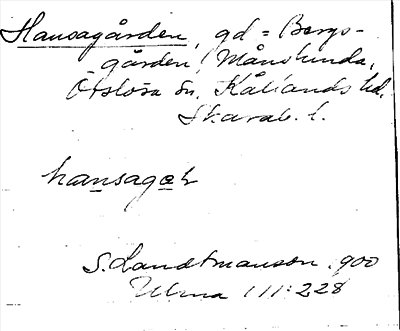 Hansagården, gd = Bergs-
gården, Månslunda,
Otslösa sn. Kållands hd.
Skarab. l.
hansagah
S. Landtmanson. 900
Ulma 111:228